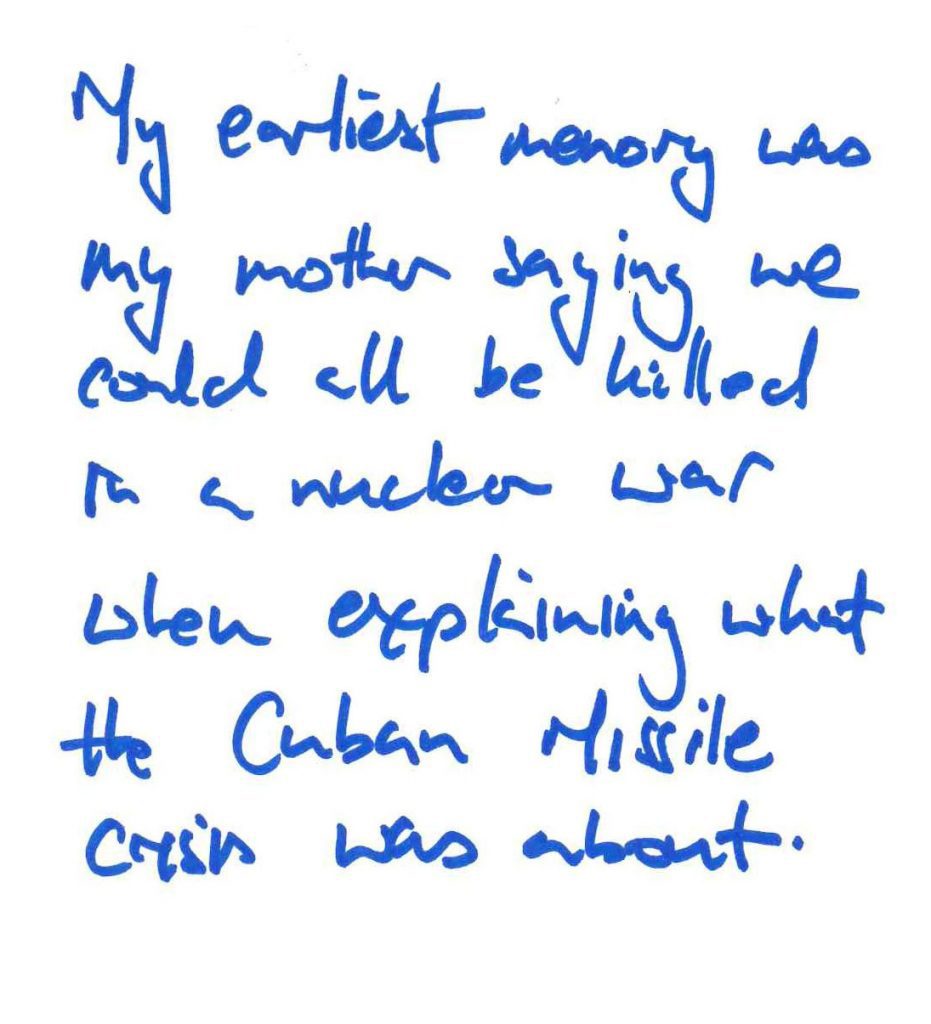 My earliest memory was
my mother saying we
could all be killed
in a nuclear war
when explaining what
the Cuban Missile
Crisis was about.